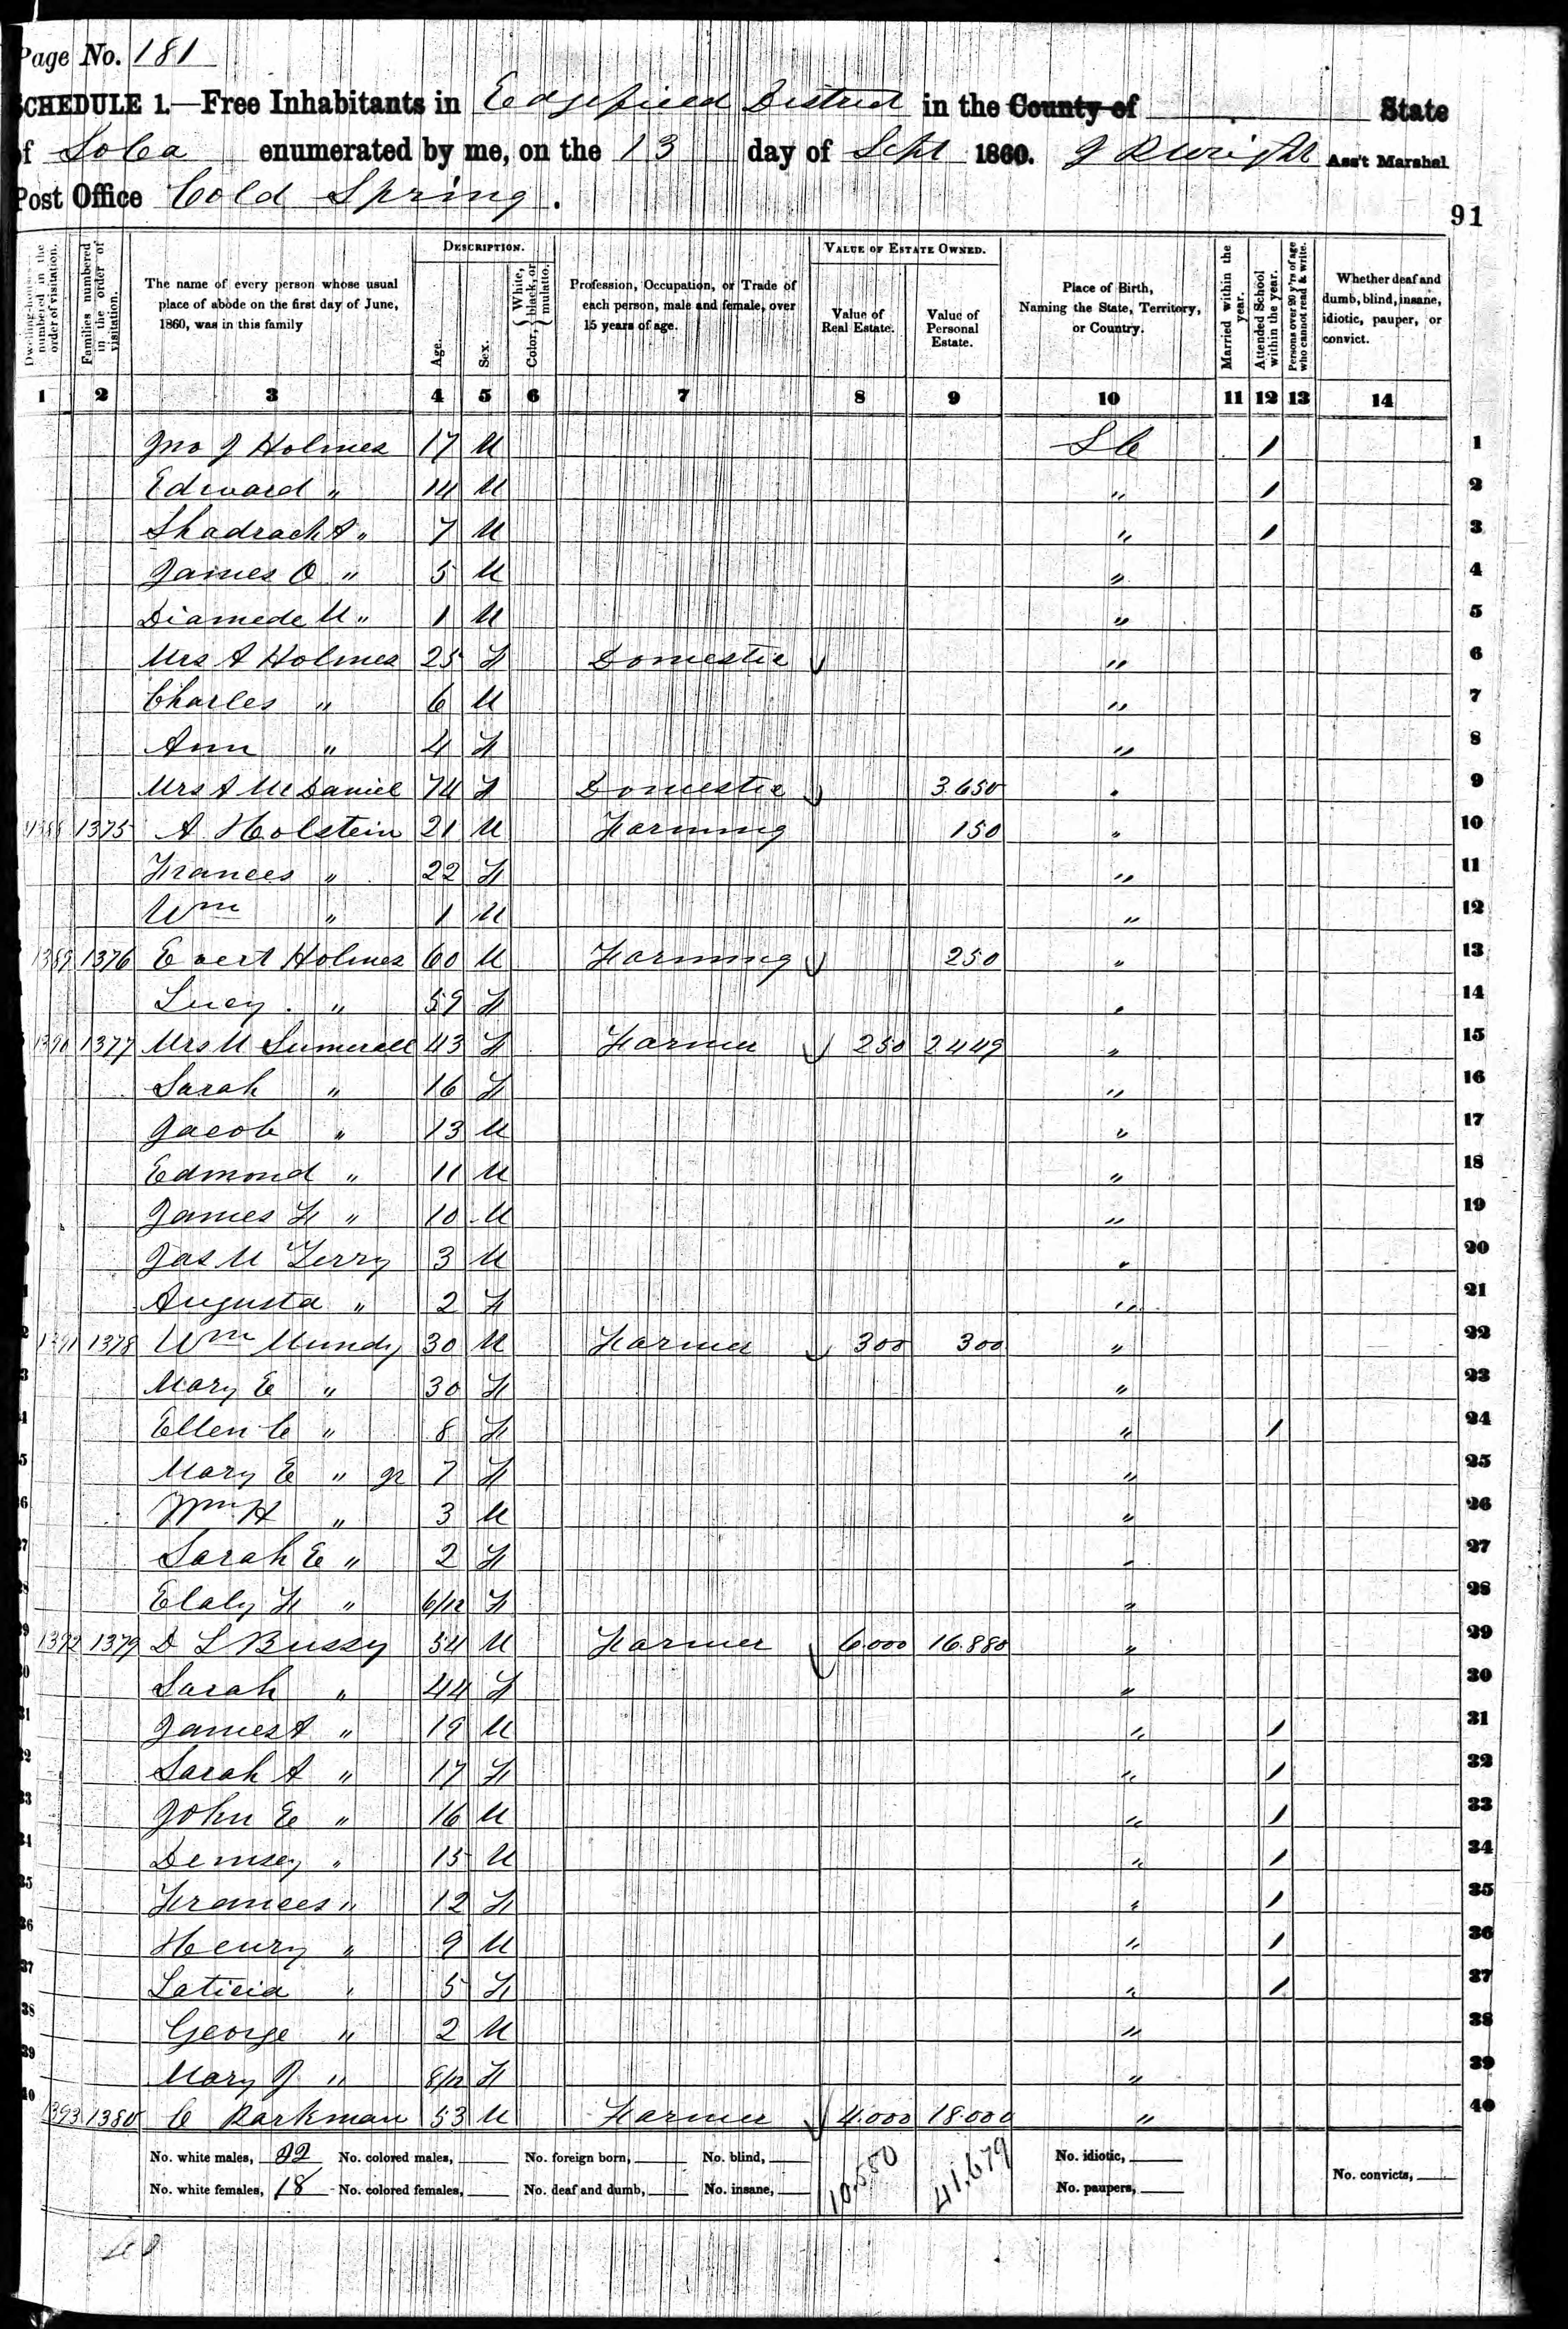 Page No. 181
SCHEDULE 1.—Free Inhabitants in Edgefield District in the County of State
of So Ca enumerated by me, on the 13 day of Sept 1860. J R Wright Ass't Marshal
Post Office Cold Spring.
91
Dwelling-houses numbered in the order of visitation.
Families numbered in the order of visitation.
The name of every person whose usual place of abode on the first day of June, 1860, was in this family
DESCRIPTION.
Age.
Sex.
Color, {White, black, or mulatto.
Profession, Occupation, or Trade of each person, male and female, over 15 years of age.
VALUE OF ESTATE OWNED.
Value of Real Estate.
Value of Personal Estate.
Place of Birth, Naming the State, Territory, or Country.
Married within the year.
Attended School within the year.
Persons over 20 y'rs of age who cannot read & write.
Whether deaf and dumb, blind, insane, idiotic, pauper, or convict.
1 2 3 4 5 6 7 8 9 10 11 12 13 14
Jno J Holmes 17 M S C / 1
Edward " 14 M " / 2
Shadrach A " 7 M " / 3
James O " 5 M " 4
Diamede M " 1 M " 5
Mrs A Holmes 25 F Domestic " 6
Charles " 6 M " 7
Ann " 4 F " 8
Mrs A McDaniel 74 F Domestic 3.650 " 9
1388 1375 A. Holstein 21 M Farming 150 " 10
Frances " 22 F " 11
Wm " 1 M " 12
1389 1376 Evert Holmes 60 M Farming 250 " 13
Lucy " 59 F " 14
1390 1377 Mrs M Sumerall 43 F Farmer 250 2449 " 15
Sarah " 16 F " 16
Jacob " 13 M " 17
Edmond " 11 M " 18
James F " 10 M " 19
Jas M Terry 3 M " 20
Augusta " 2 F " 21
1391 1378 Wm Mundy 30 M Farmer 300 300 " 22
Mary E " 30 F " 23
Ellen C " 8 F " / 24
Mary E " Jr 7 F " 25
Wm H " 3 M " 26
Sarah E " 2 F " 27
F " 6/12 F " 28
1392 1379 D L Bussy 54 M Farmer 6.000 16.880 " 29
Sarah " 44 F " 30
James A " 19 M " / 31
Sarah A " 17 F " / 32
John E " 16 M " / 33
Demsey " 15 M " / 34
Frances " 12 F " / 35
Henry " 9 M " / 36
Laticia " 5 F " / 37
George " 2 M " 38
Mary J " 8/12 F " 39
1393 1380 C Parkman 53 M Farmer 4.000 18.000 " 40
No. white males, 22 No. colored males, No. foreign born, No. blind, 10.550 41.679 No. idiotic,
No. white females, 18 No. colored females, No. deaf and dumb, No. insane, No. paupers, No. convicts,